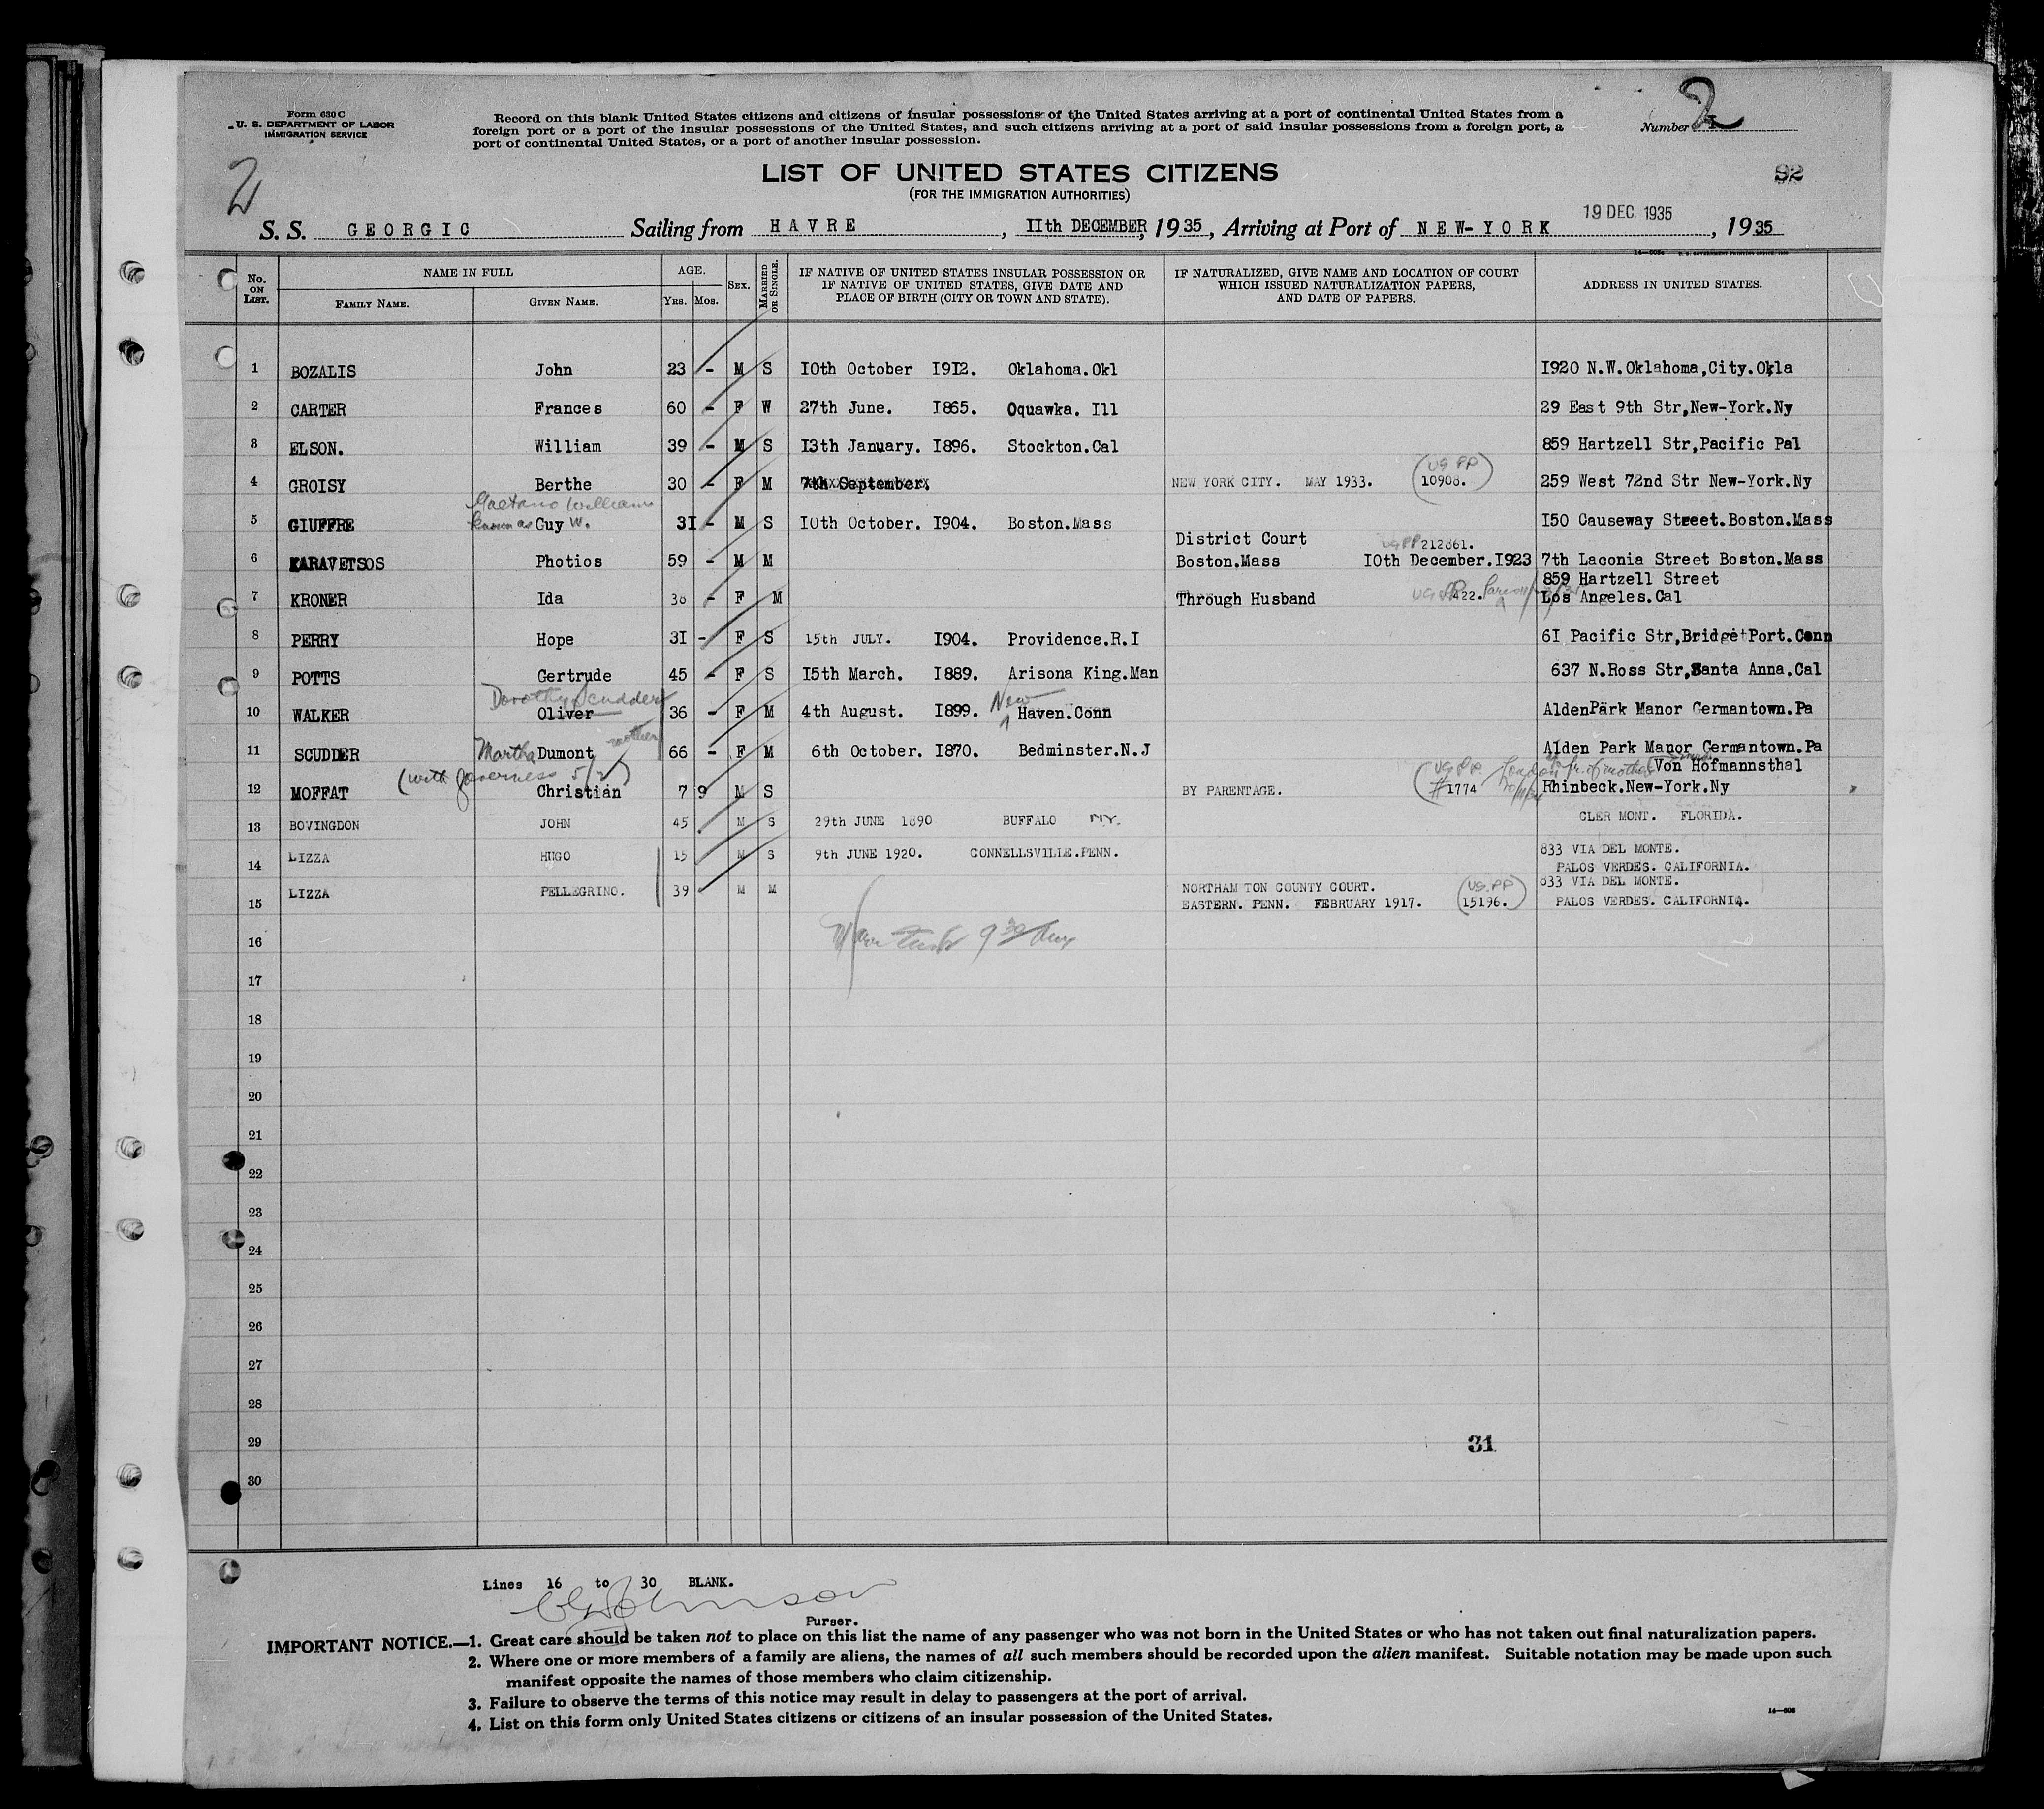 Form 630 C
U. S. DEPARTMENT OF LABOR
IMMIGRATION SERVICE
Record on this blank United States citizens and citizens of insular possessions of the United States arriving at a port of continental United States from a
foreign port or a port of the insular possessions of the United States, and such citizens arriving at a port of said insular possessions from a foreign port, a
port of continental United States, or a port of another insular possession.
Number 2
2
LIST OF UNITED STATES CITIZENS
(FOR THE IMMIGRATION AUTHORITIES)
92
19 DEC. 1935
S. S. GEORGIC Sailing from HAVRE, IIth DECEMBER, 1935, Arriving at Port of NEW-YORK, 1935
14—608a U. S. GOVERNMENT PRINTING OFFICE
No. ON LIST. NAME IN FULL FAMILY NAME. GIVEN NAME. AGE. YRS. MOS. SEX. MARRIED OR SINGLE. IF NATIVE OF UNITED STATES INSULAR POSSESSION OR IF NATIVE OF UNITED STATES, GIVE DATE AND PLACE OF BIRTH (CITY OR TOWN AND STATE). IF NATURALIZED, GIVE NAME AND LOCATION OF COURT WHICH ISSUED NATURALIZATION PAPERS, AND DATE OF PAPERS. ADDRESS IN UNITED STATES.
1 BOZALIS John 23 - M S I0th October I9I2. Oklahoma.Okl I920 N.W.Oklahoma,City.Okla
2 CARTER Frances 60 - F W 27th June. I865. Oquawka. Ill 29 East 9th Str,New-York.Ny
3 ELSON. William 39 - M S I3th January. I896. Stockton.Cal 859 Hartzell Str,Pacific Pal
US PP
4 GROISY Berthe 30 - F M 7th September. NEW YORK CITY. MAY 1933. 10908. 259 West 72nd Str New-York.Ny
Gaetano William
5 GIUFFRE known as Guy W. 3I - M S I0th October. I904. Boston.Mass I50 Causeway Street.Boston.Mass
District Court US PP 212861.
6 KARAVETSOS Photios 59 - M M Boston.Mass I0th December.I923 7th Laconia Street Boston.Mass
859 Hartzell Street
7 KRONER Ida 38 - F M Through Husband 422. Los Angeles.Cal
8 PERRY Hope 3I - F S 15th JULY. I904. Providence.R.I 6I Pacific Str,Bridge+Port.Conn
9 POTTS Gertrude 45 - F S I5th March. I889. Arisona King.Man 637 N.Ross Str,Santa Anna.Cal
Dorothy Scudder New
10 WALKER Oliver 36 - F M 4th August. I899. Haven.Conn AldenPark Manor Germantown.Pa
mother
11 SCUDDER Martha Dumont 66 - F M 6th October. I870. Bedminster.N.J Alden Park Manor Germantown.Pa
(with governess 5/2) US PP London of mother Von Hofmannsthal
12 MOFFAT Christian 7 9 M S BY PARENTAGE. #1774 Rhinbeck.New-York.Ny
13 BOVINGDON JOHN 45 M S 29th JUNE 1890 BUFFALO NY. CLER MONT. FLORIDA.
14 LIZZA HUGO 15 M S 9th JUNE 1920. CONNELLSVILLE.PENN. 833 VIA DEL MONTE.
PALOS VERDES. CALIFORNIA.
15 LIZZA PELLEGRINO. 39 M M NORTHAM TON COUNTY COURT. US.PP 833 VIA DEL MONTE.
EASTERN. PENN. FEBRUARY 1917. 15196. PALOS VERDES. CALIFORNIA.
16
17
18
19
20
21
22
23
24
25
26
27
28
29
31
30
Lines 16 to 30 BLANK.
Johnson
Purser.
IMPORTANT NOTICE.—1. Great care should be taken not to place on this list the name of any passenger who was not born in the United States or who has not taken out final naturalization papers.
2. Where one or more members of a family are aliens, the names of all such members should be recorded upon the alien manifest. Suitable notation may be made upon such
manifest opposite the names of those members who claim citizenship.
3. Failure to observe the terms of this notice may result in delay to passengers at the port of arrival.
4. List on this form only United States citizens or citizens of an insular possession of the United States.
14—608